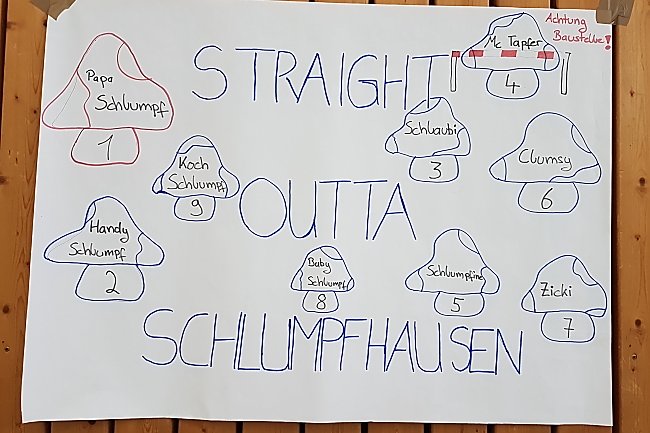 Achtung
Baustelle!
Mc Tapfer
4
Papa
Schlumpf
1
STRAIGHT
Schlaubi
3
Clumsy
6
Koch
Schlumpf
9
OUTTA
Handy
Schlumpf
2
Baby
Schlumpf
8
Schlumpfine
5
Zicki
7
SCHLUMPFHAUSEN